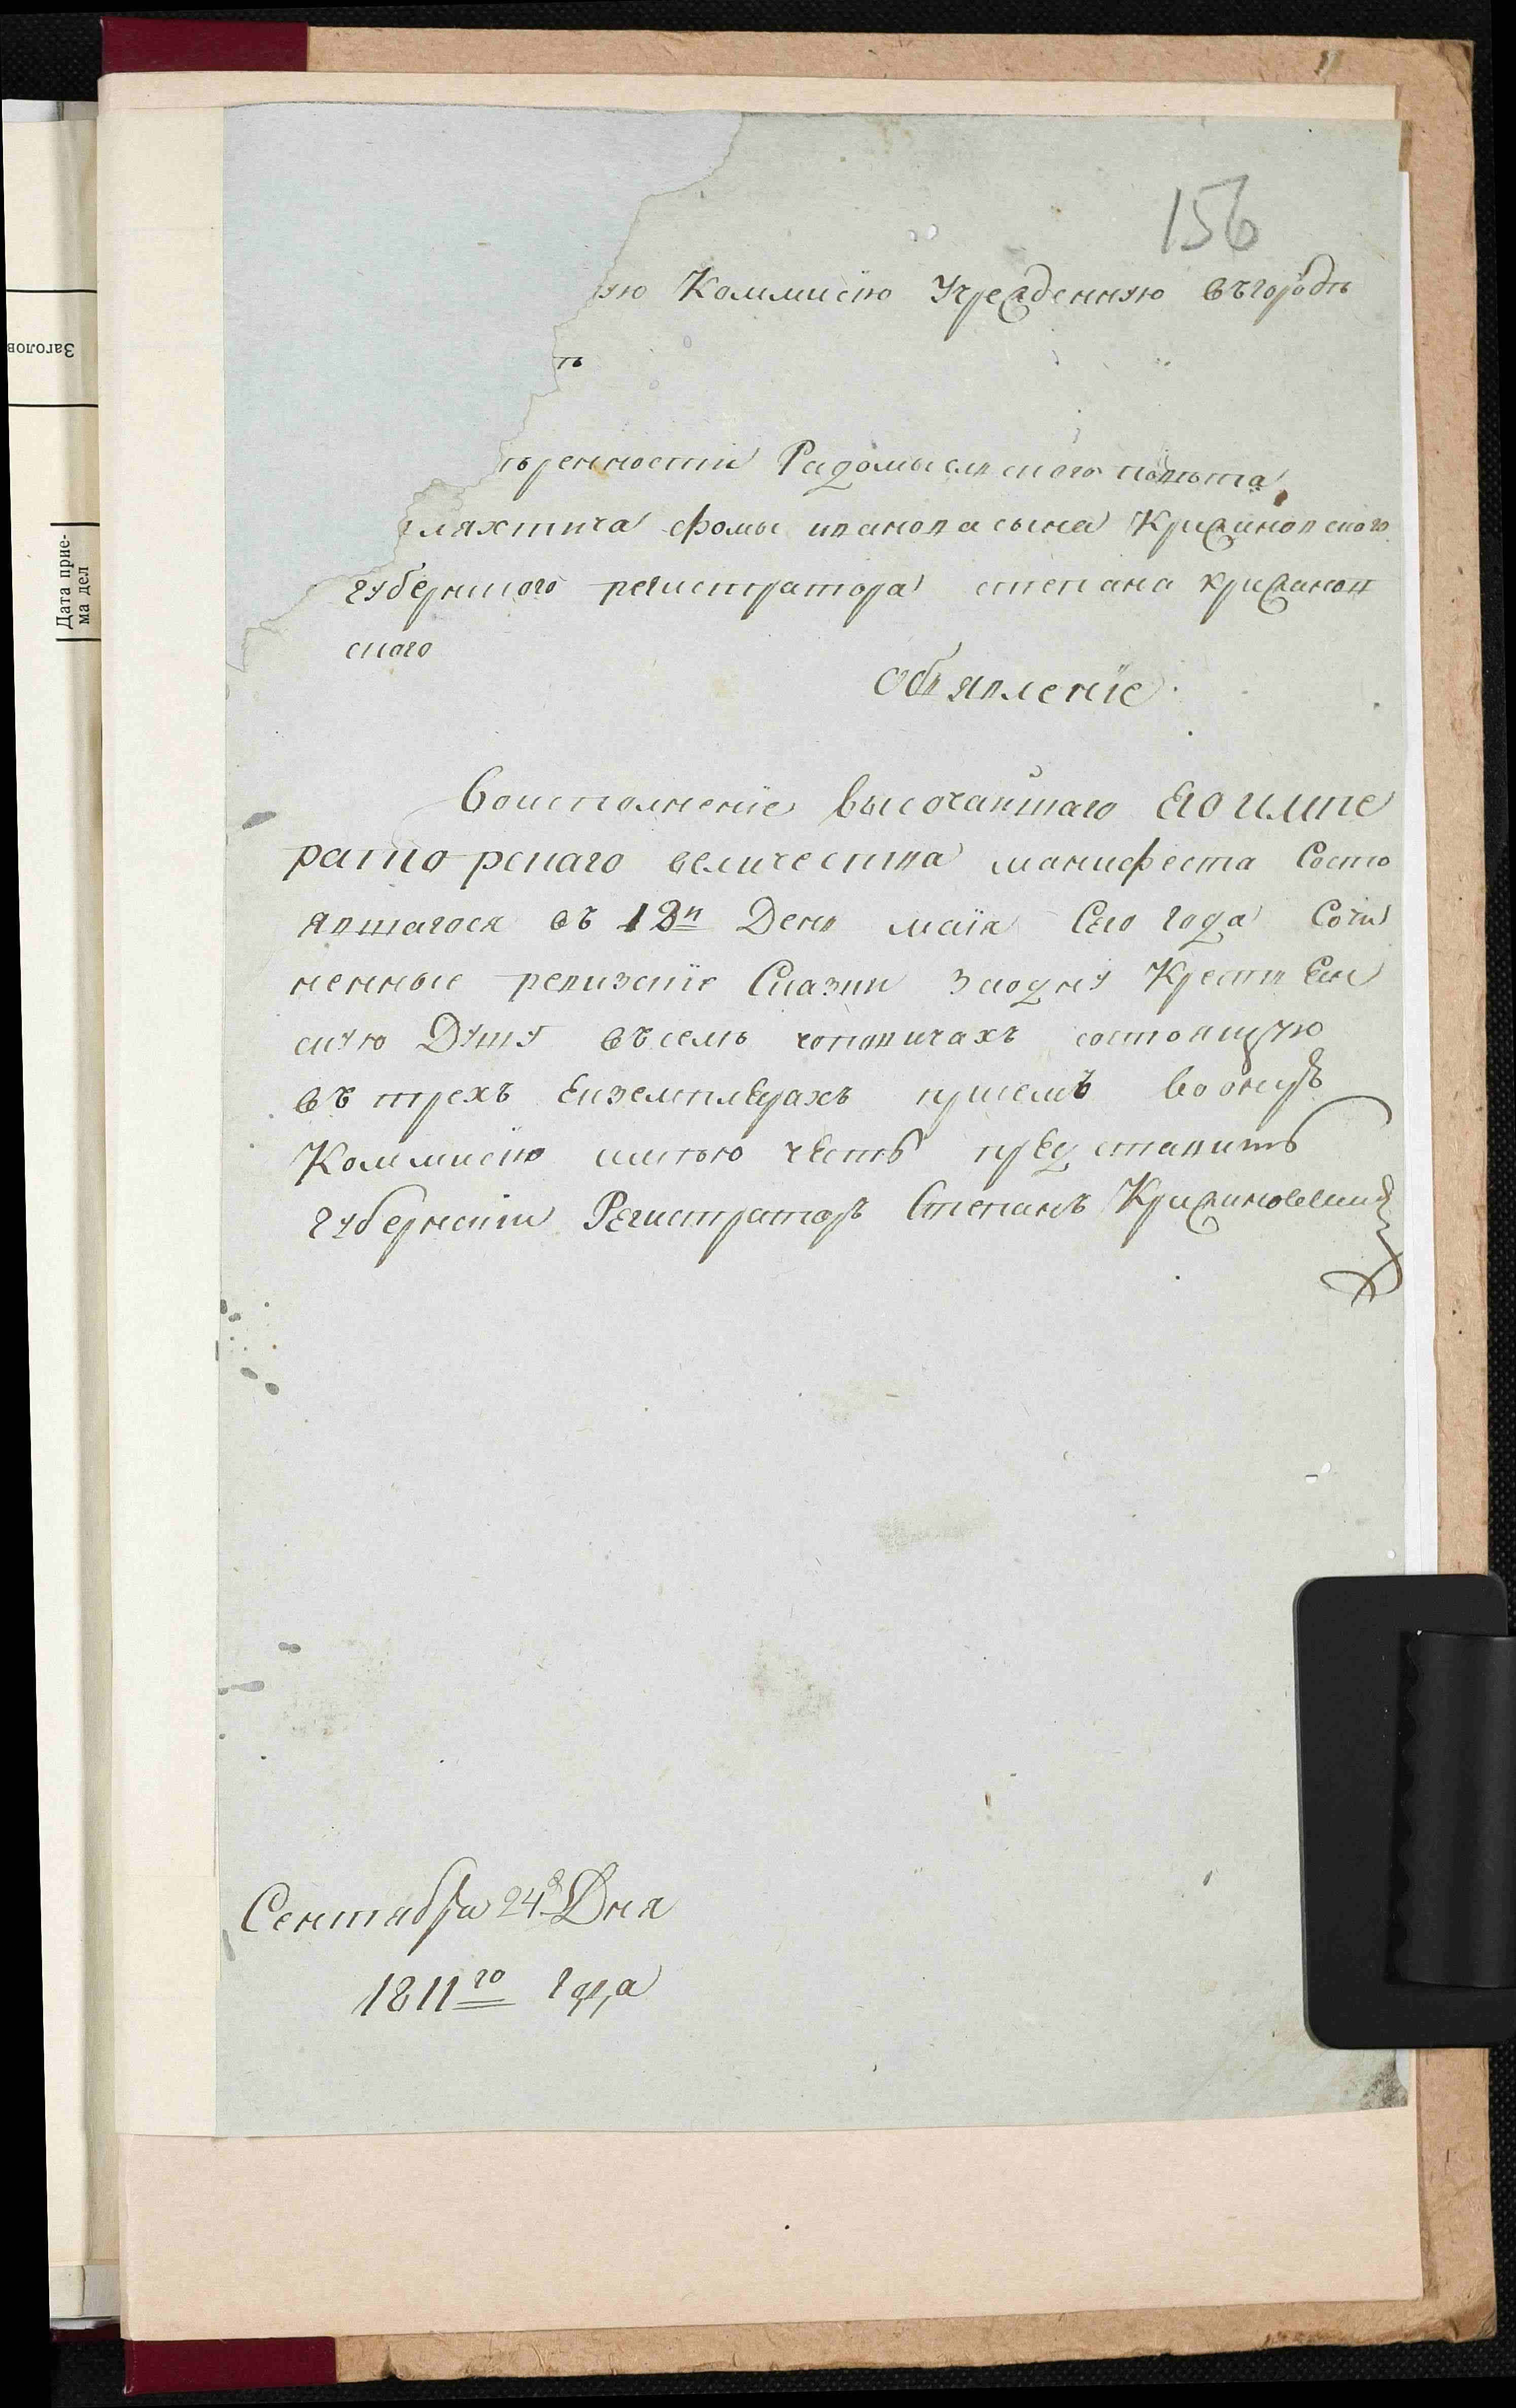 156
ую Коммисїю Учрежденную въгородѣ
ѣ
ѣренности Радомысльского повѣта
шляхтича фомы иванова сына Крижановского
губернского регистратора степана крижанов
ского
Объявленїе
Воисполненїе высочайшаго Его импе
раторскаго величества манифеста Состо
явшагося въ 18й День маїя Сего года Сочи
ненные ревизскїе Сказки Заодну Крестьян
скую Душу въселѣ чоповичахъ состоящую
въ трехъ Екземплярахъ присемъ Во оную
Коммисїю имѣю честь представить
Губернскїи Регистраторъ Степанъ Крижановский
Сентября 24 Дня
1811го года
Заголов
Дата прие-
ма дел